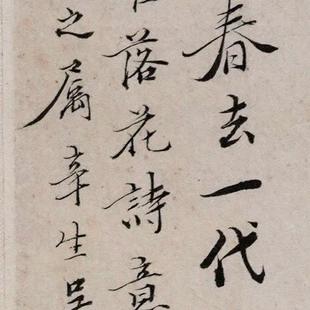 春去一代
落花詩意
之属辛生